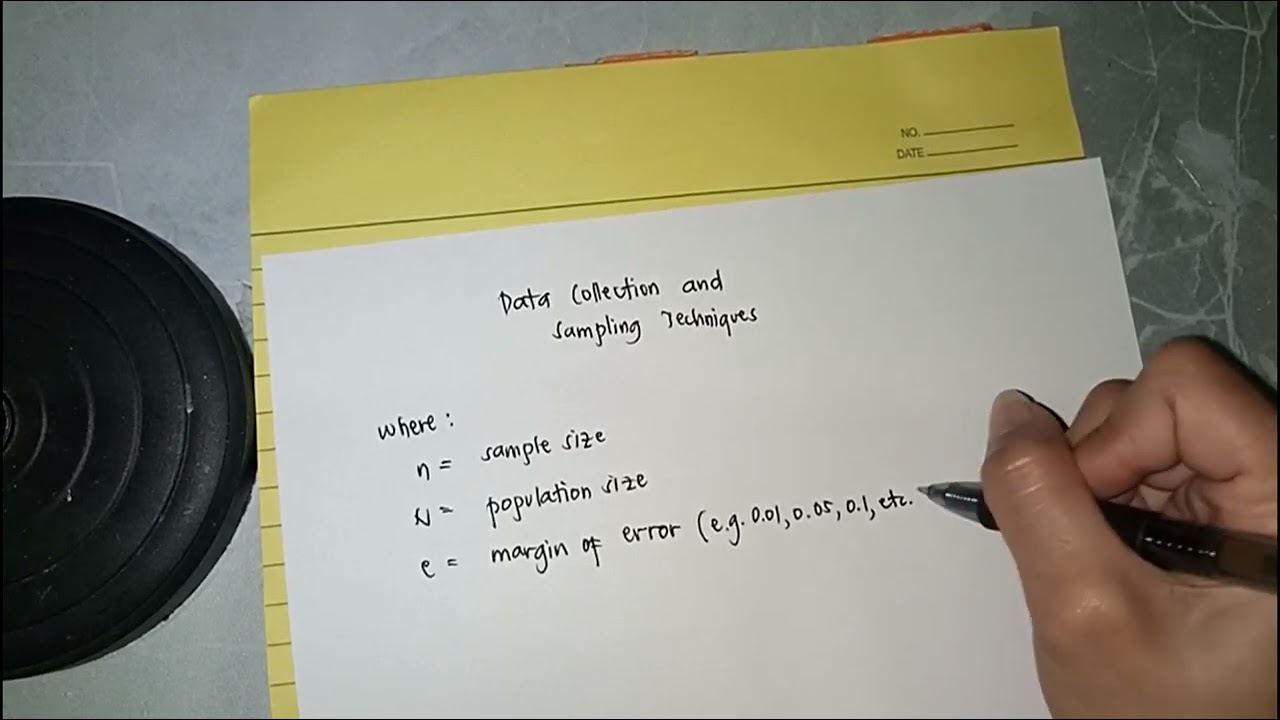 NO.
DATE
Data Collection and
Sampling Techniques
where:
n = sample size
N = population size
e = margin of error (e.g. 0.01, 0.05, 0.1, etc.